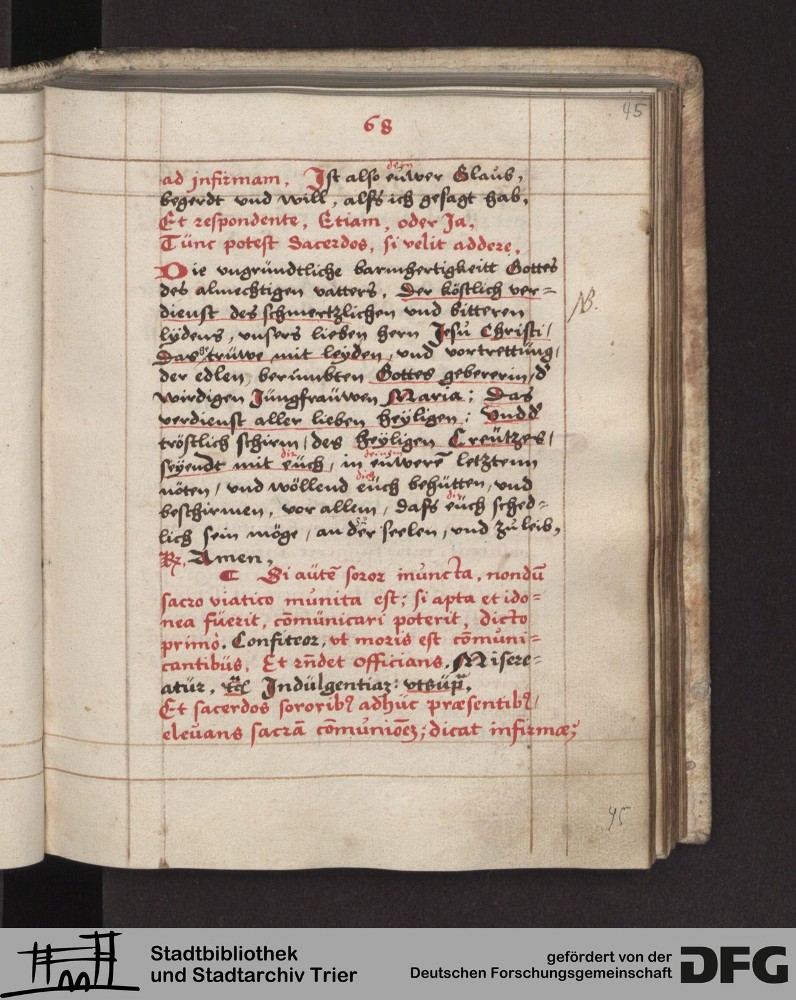 45
68
ad infirmam, Ist also eüwer Glaub,
dein
begerdt vnd will, alss ich gesagt hab,
Et respondente, Etiam, oder Ja,
Tünc potest Sacerdos, si velit addere,
Die vngründtliche barmhertigkeitt Gottes
des almechtigen vatters, Der köstlich ver=
NB.
dienst des schmertzlichen vnd bitteren
lÿdens, vnsers lieben hern Jesu Christi/
Das trüwe mit leyden, vnd vortrettüng/
der edlen, berümbten Gottes gebererin/ d
wirdigen Jüngfraüwen Maria; Das
verdienst aller lieben heÿligen; Vndd
tröstlich schirm/ des heÿligen Creützes/
seÿendt mit eüch, in eüwerē letztenn
nöten/ vnd wöllend eüch behütten, vnd
dich
beschirmen, vor allem, dass eüch sched=
dir
lich sein möge/ an der seelen, vnd zu leib,
℟. Amen,
¶ Si aütē soror inuncta, nondū
sacro viatico munita est; si apta et ido=
nea füerit, cōmünicari poterit, dicto
primò. Confiteor, vt moris est cōmuni=
cantibüs, Et rn̄det Officians, Misere=
atür, &c̄ Indülgentiaʒ: vtsüp̄,
Et sacerdos sororibꝫ adhüc præsentibꝫ/
eleüans sacrā cōmunionēʒ; dicat infirmæ;
45
Stadtbibliothek
und Stadtarchiv Trier
gefördert von der
Deutschen Forschungsgemeinschaft
DFG